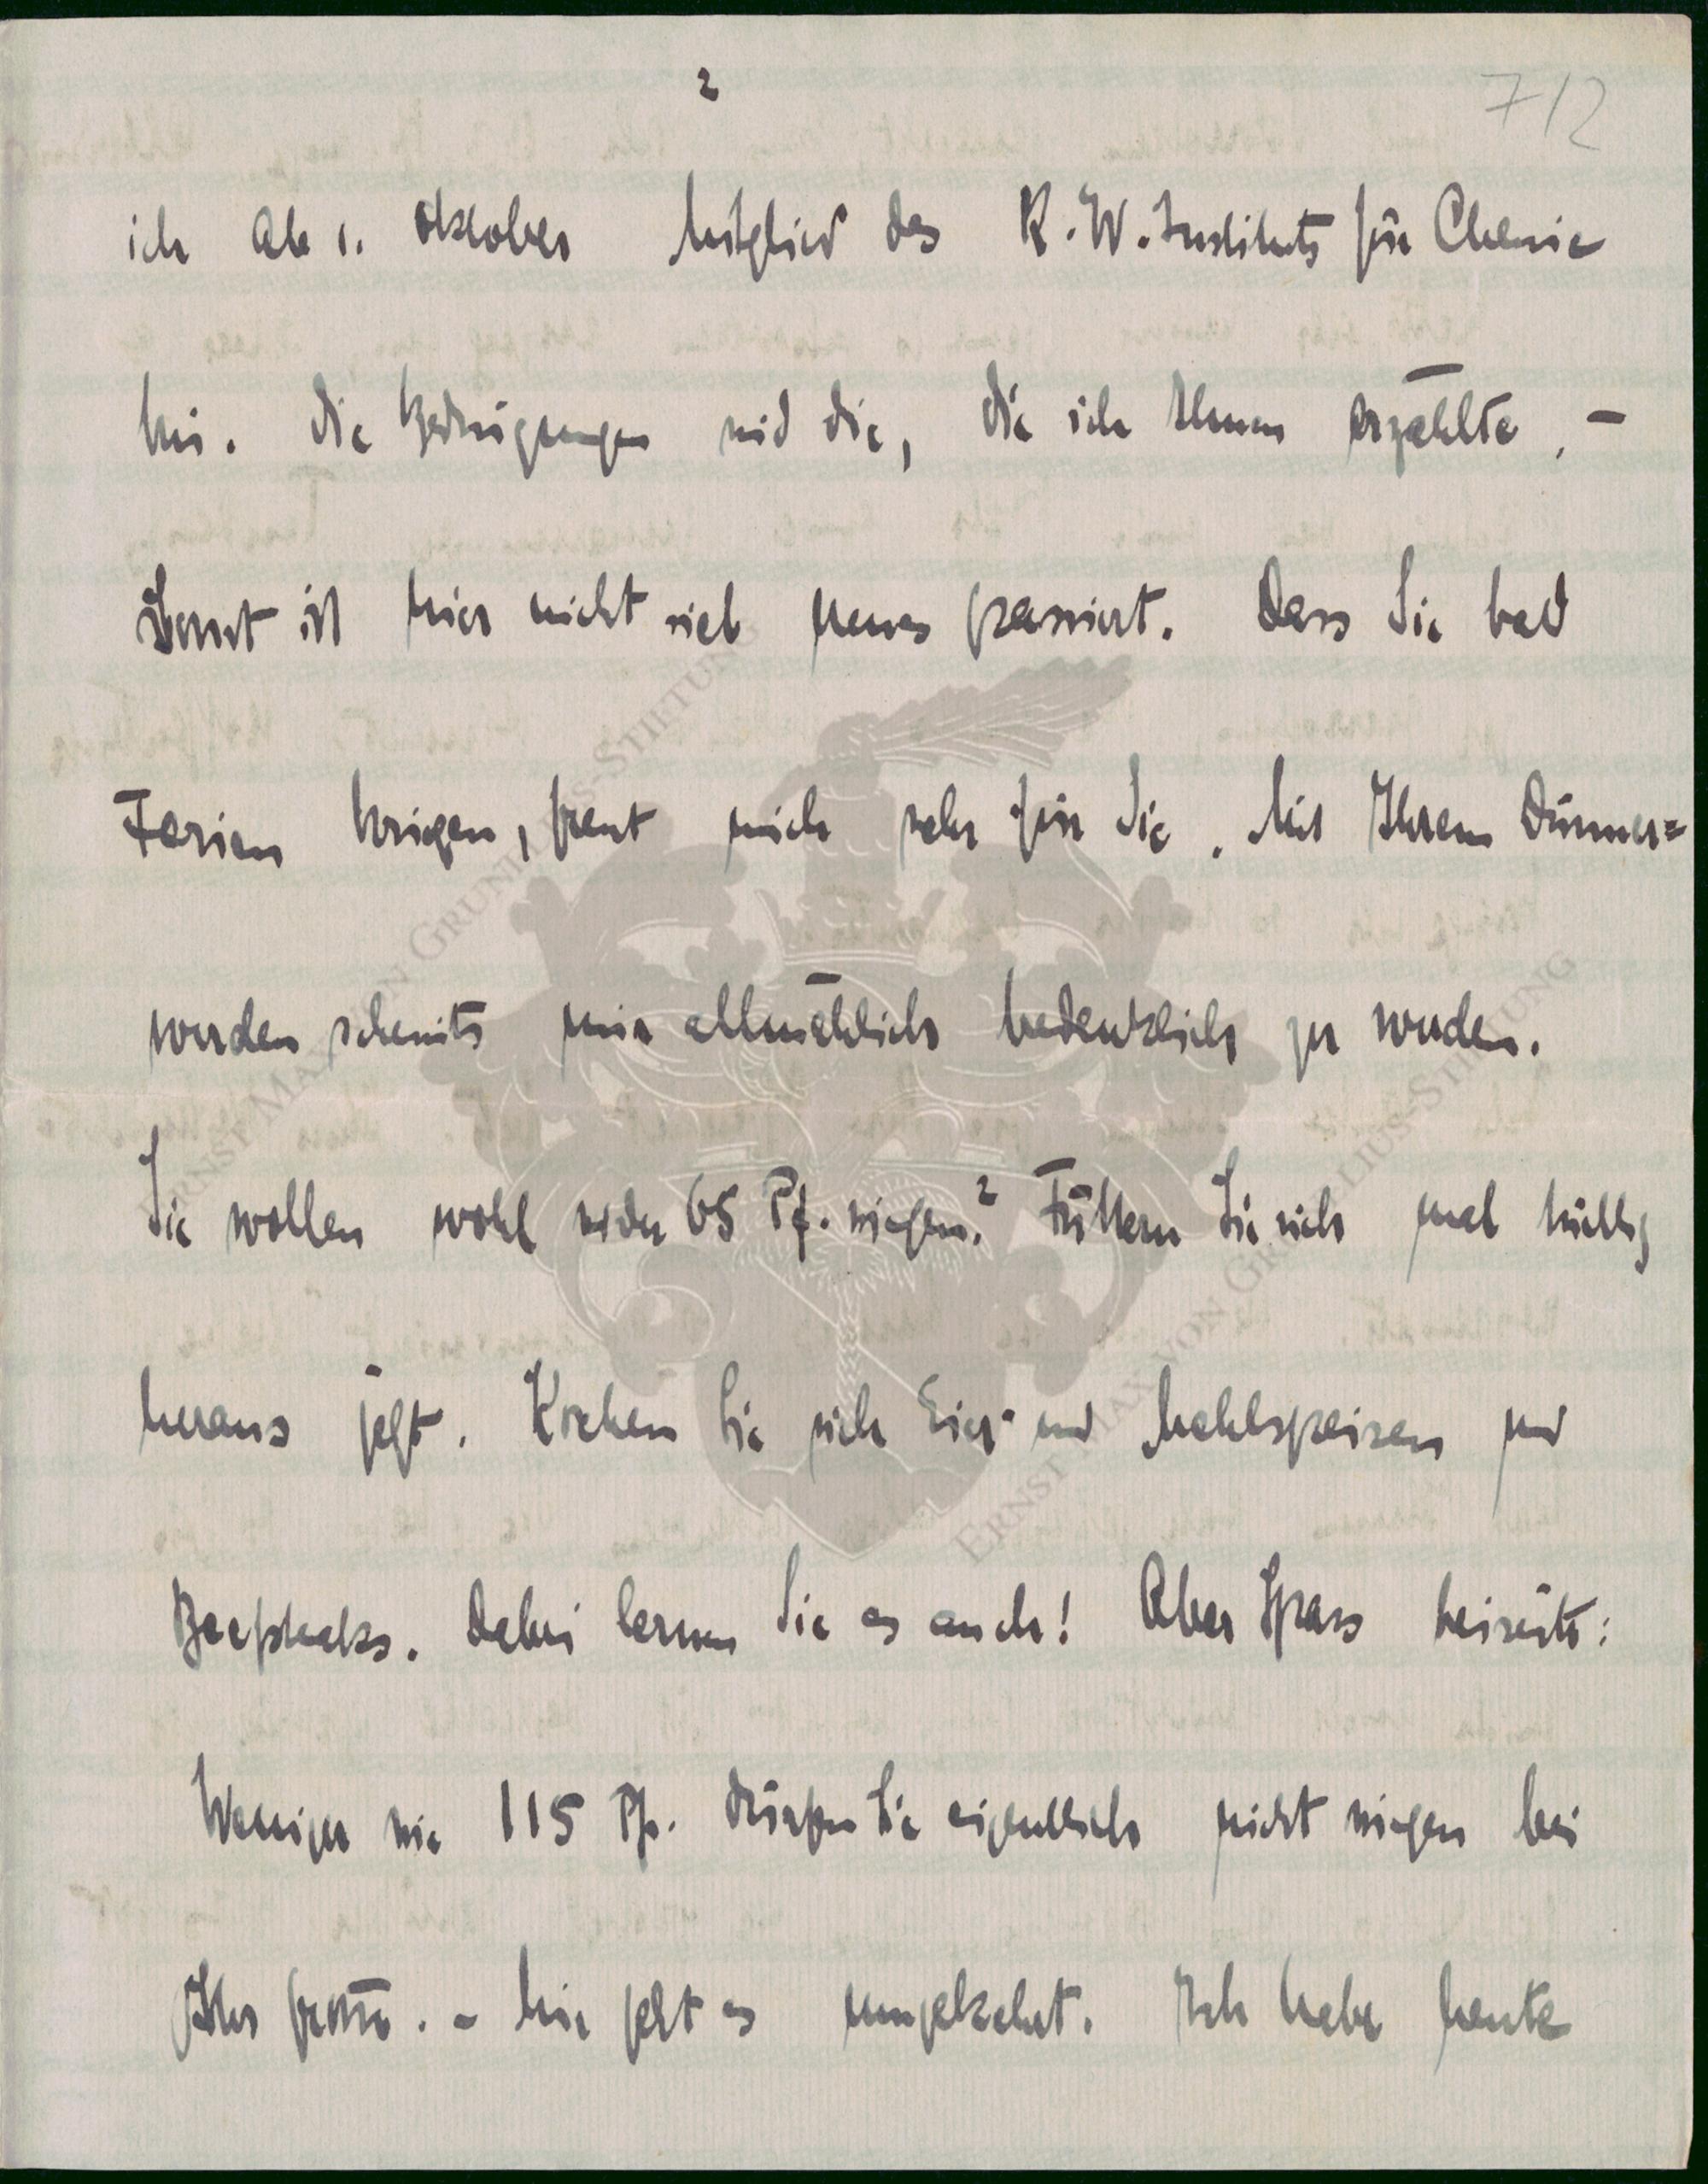 2
7/2
ich ab 1. Oktober Mitglied des K.W. Instituts für Chemie
bin. Die Bedingungen sind die, die ich Ihnen erzählte. –
Sonst ist hier nicht viel neues passiert. Dass Sie bald
Ferien kriegen, freut mich sehr für Sie. Mit Ihrem Dünner=
werden scheints mir allmählich bedenklich zu werden.
Sie wollen wohl wieder 65 Pf. wiegen? Füttern Sie sich mal
heraus jetzt. Kochen Sie sich Eier- und Mehlspeisen und
Beefsteaks. Dabei lernen Sie es auch! Aber Spass beiseite:
Weniger wie 115 Pf. dürfen Sie eigentlich nicht wiegen bei
Ihrer – Mir geht es umgekehrt. Ich habe heute
ERNST MAX VON GRUNELIUS-STIFTUNG
ERNST MAX VON GRUNELIUS-STIFTUNG